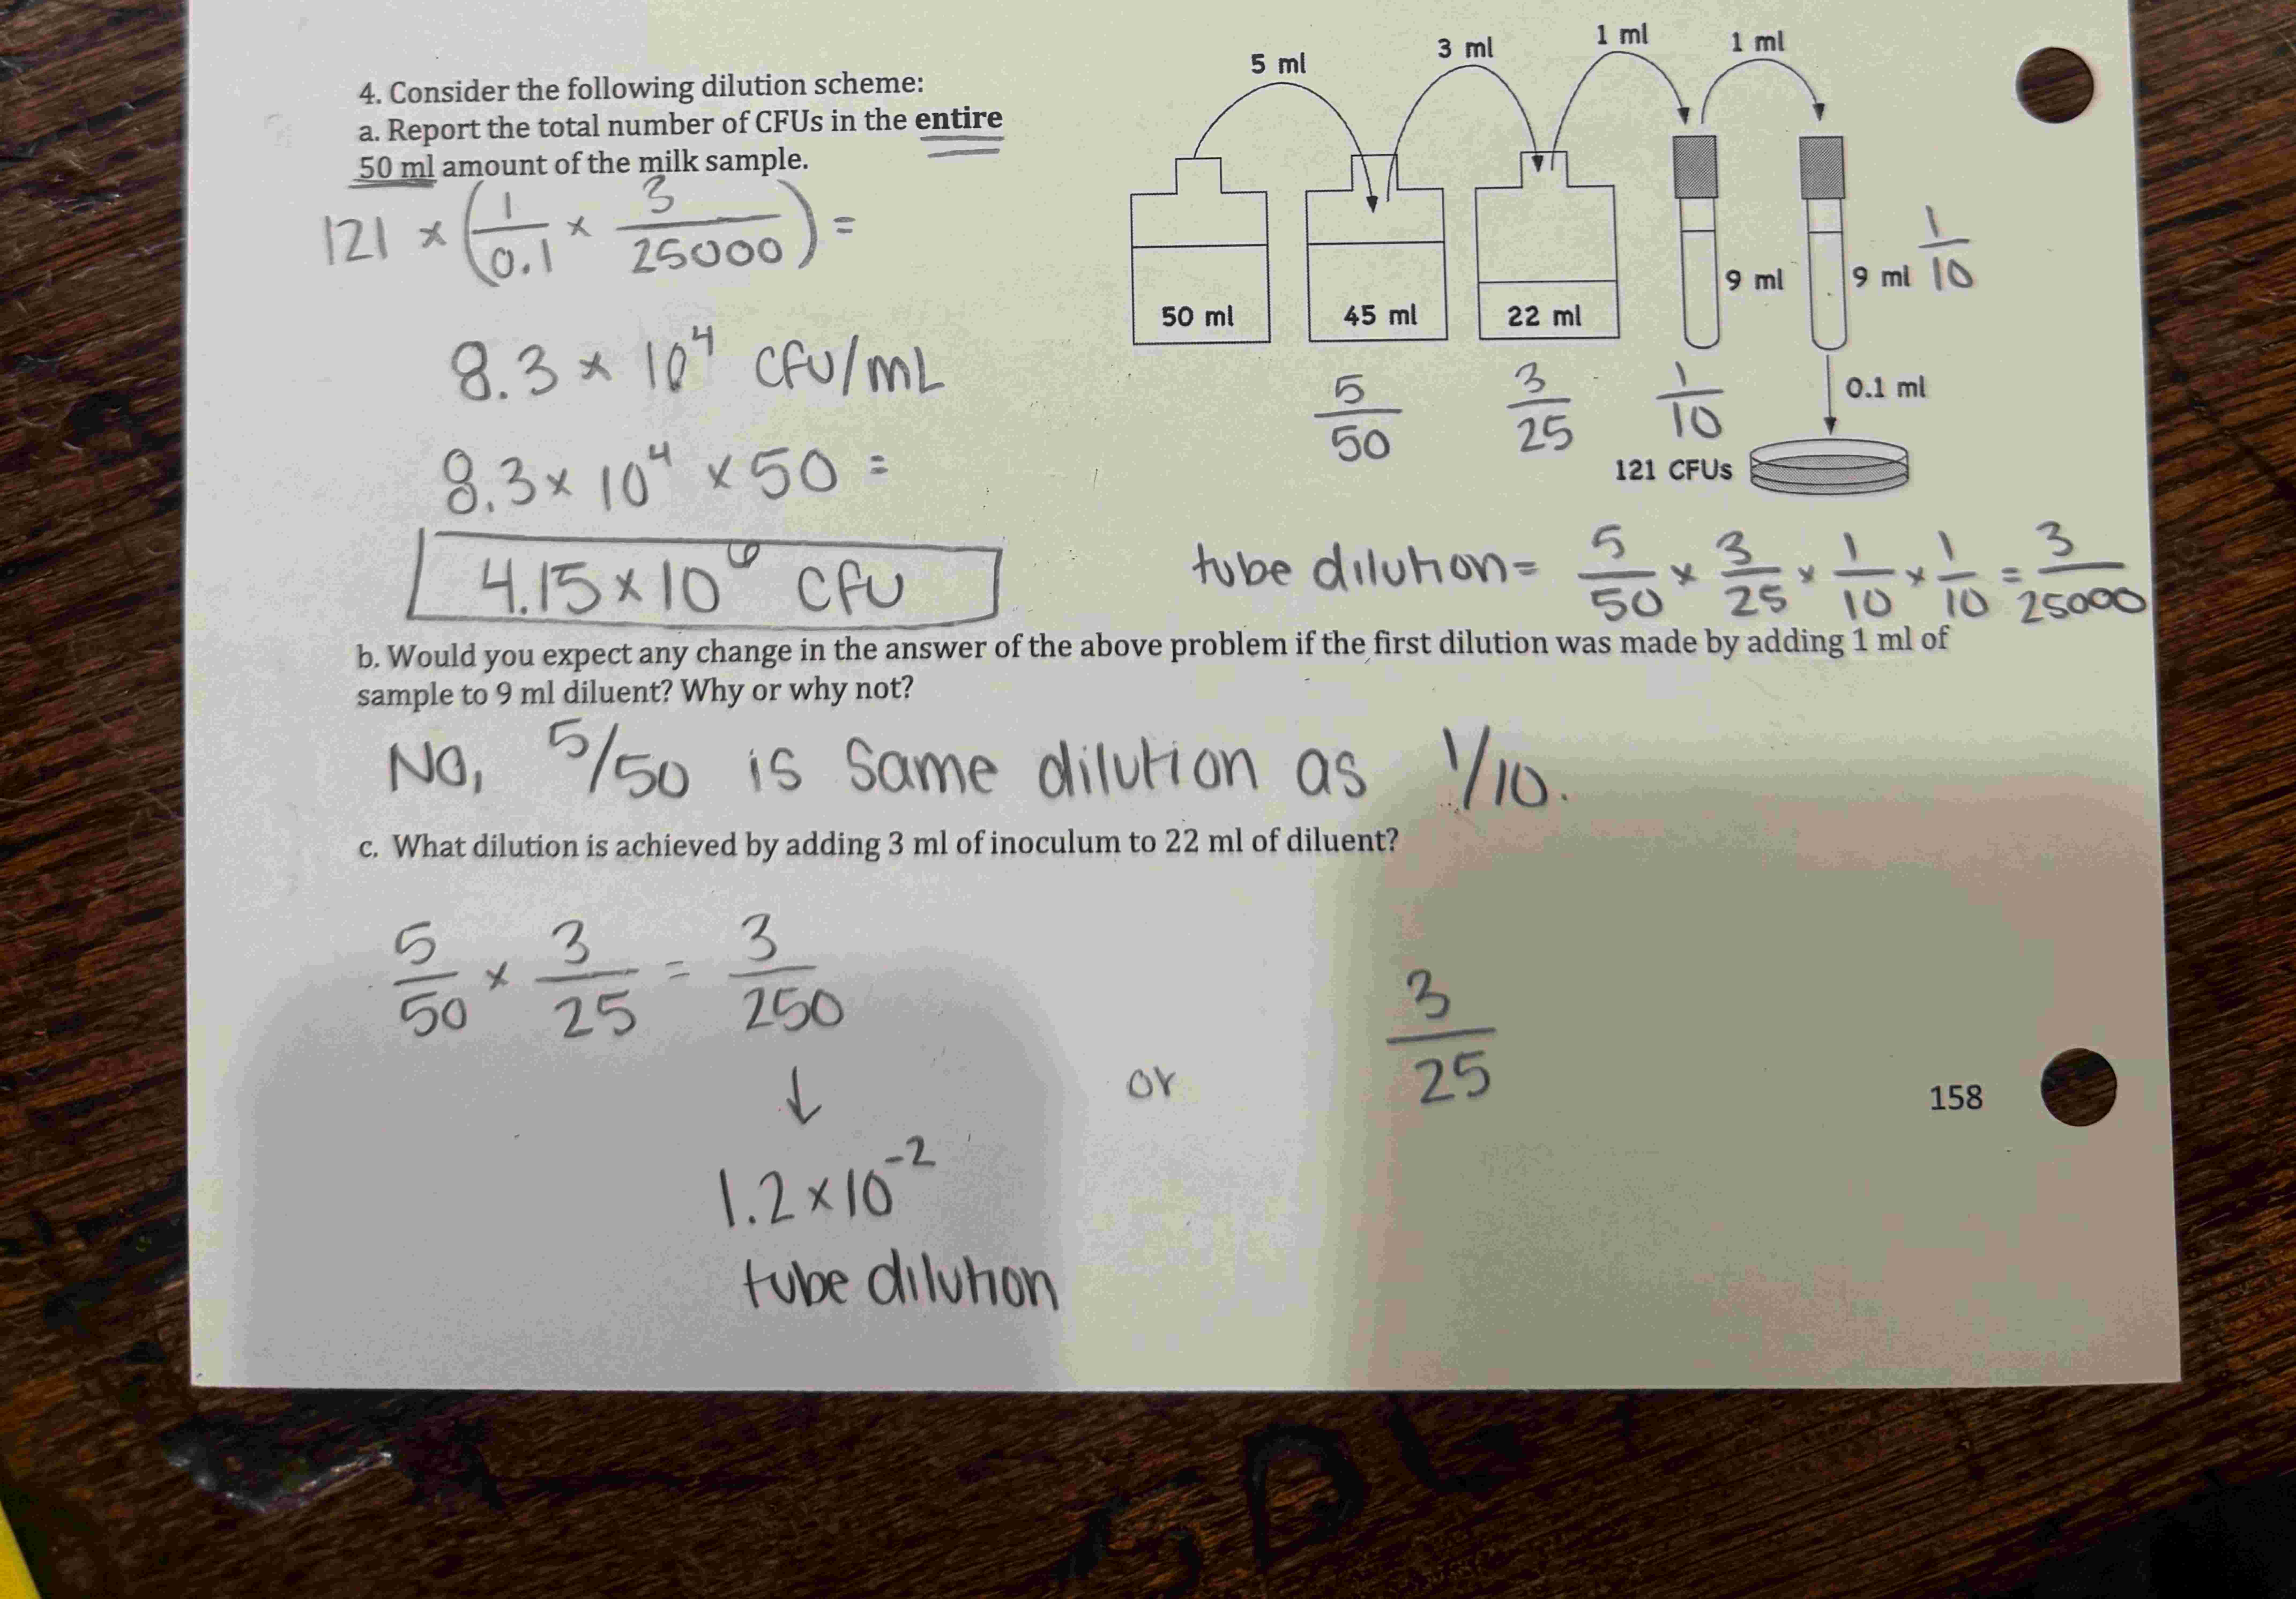 4. Consider the following dilution scheme:
a. Report the total number of CFUs in the entire
50 ml amount of the milk sample.
121 × (1/0.1 × 3/25000) =
8.3 × 10⁴ CFU/mL
8.3 × 10⁴ × 50 =
4.15 × 10⁶ CFU
5 ml
3 ml
1 ml
1 ml
50 ml
45 ml
22 ml
9 ml
9 ml
1/10
5/50
3/25
1/10
0.1 ml
121 CFUs
tube dilution = 5/50 × 3/25 × 1/10 × 1/10 = 3/25000
b. Would you expect any change in the answer of the above problem if the first dilution was made by adding 1 ml of
sample to 9 ml diluent? Why or why not?
No, 5/50 is same dilution as 1/10.
c. What dilution is achieved by adding 3 ml of inoculum to 22 ml of diluent?
5/50 × 3/25 = 3/250
↓
or
3/25
1.2 × 10⁻²
tube dilution
158